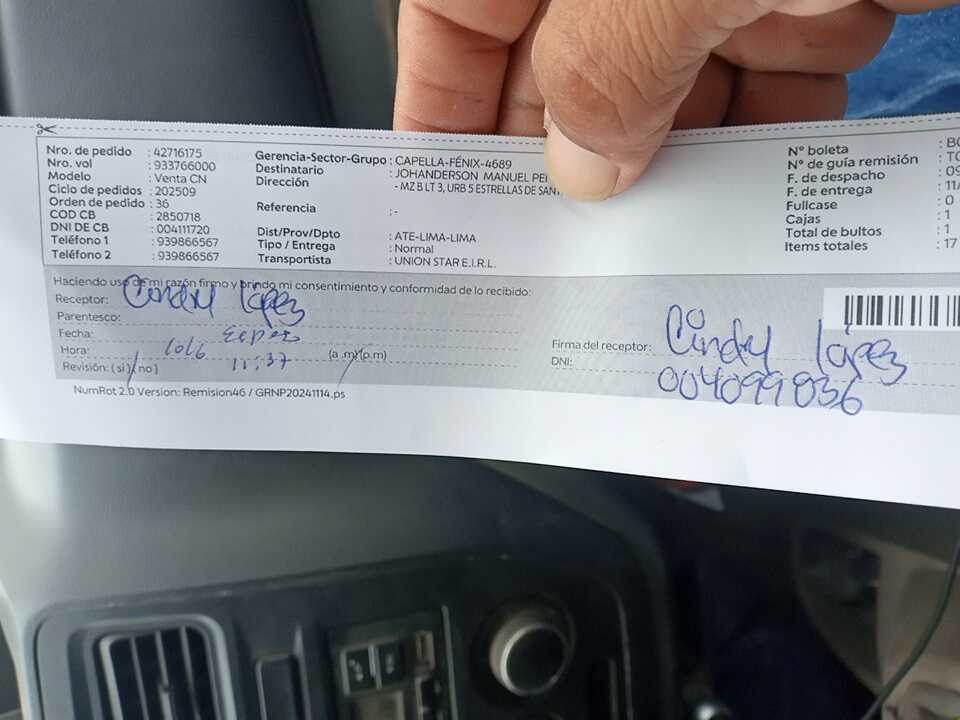 Nro. de pedido : 42716175
Nro. vol : 933766000
Modelo : Venta CN
Ciclo de pedidos : 202509
Orden de pedido : 36
COD CB : 2850718
DNI DE CB : 004111720
Teléfono 1 : 939866567
Teléfono 2 : 939866567
Gerencia-Sector-Grupo : CAPELLA-FÉNIX-4689
Destinatario : JOHANDERSON MANUEL
Dirección - MZ B LT 3, URB 5 ESTRELLAS DE
Referencia : -
Dist/Prov/Dpto : ATE-LIMA-LIMA
Tipo / Entrega : Normal
Transportista : UNION STAR E.I.R.L.
N° boleta :
N° de guía remisión :
F. de despacho :
F. de entrega :
Fullcase : 0
Cajas : 1
Total de bultos : 1
Items totales : 17
Haciendo uso de mi razón firmo y brindo mi consentimiento y conformidad de lo recibido:
Receptor: Cindy López
Parentesco:
Fecha:
Hora: 11:37 (a.m)(p.m)
Revisión: (si) (no)
Firma del receptor: Cindy López
DNI: 004099836
NumRot 2.0 Version: Remision46 / GRNP20241114.ps